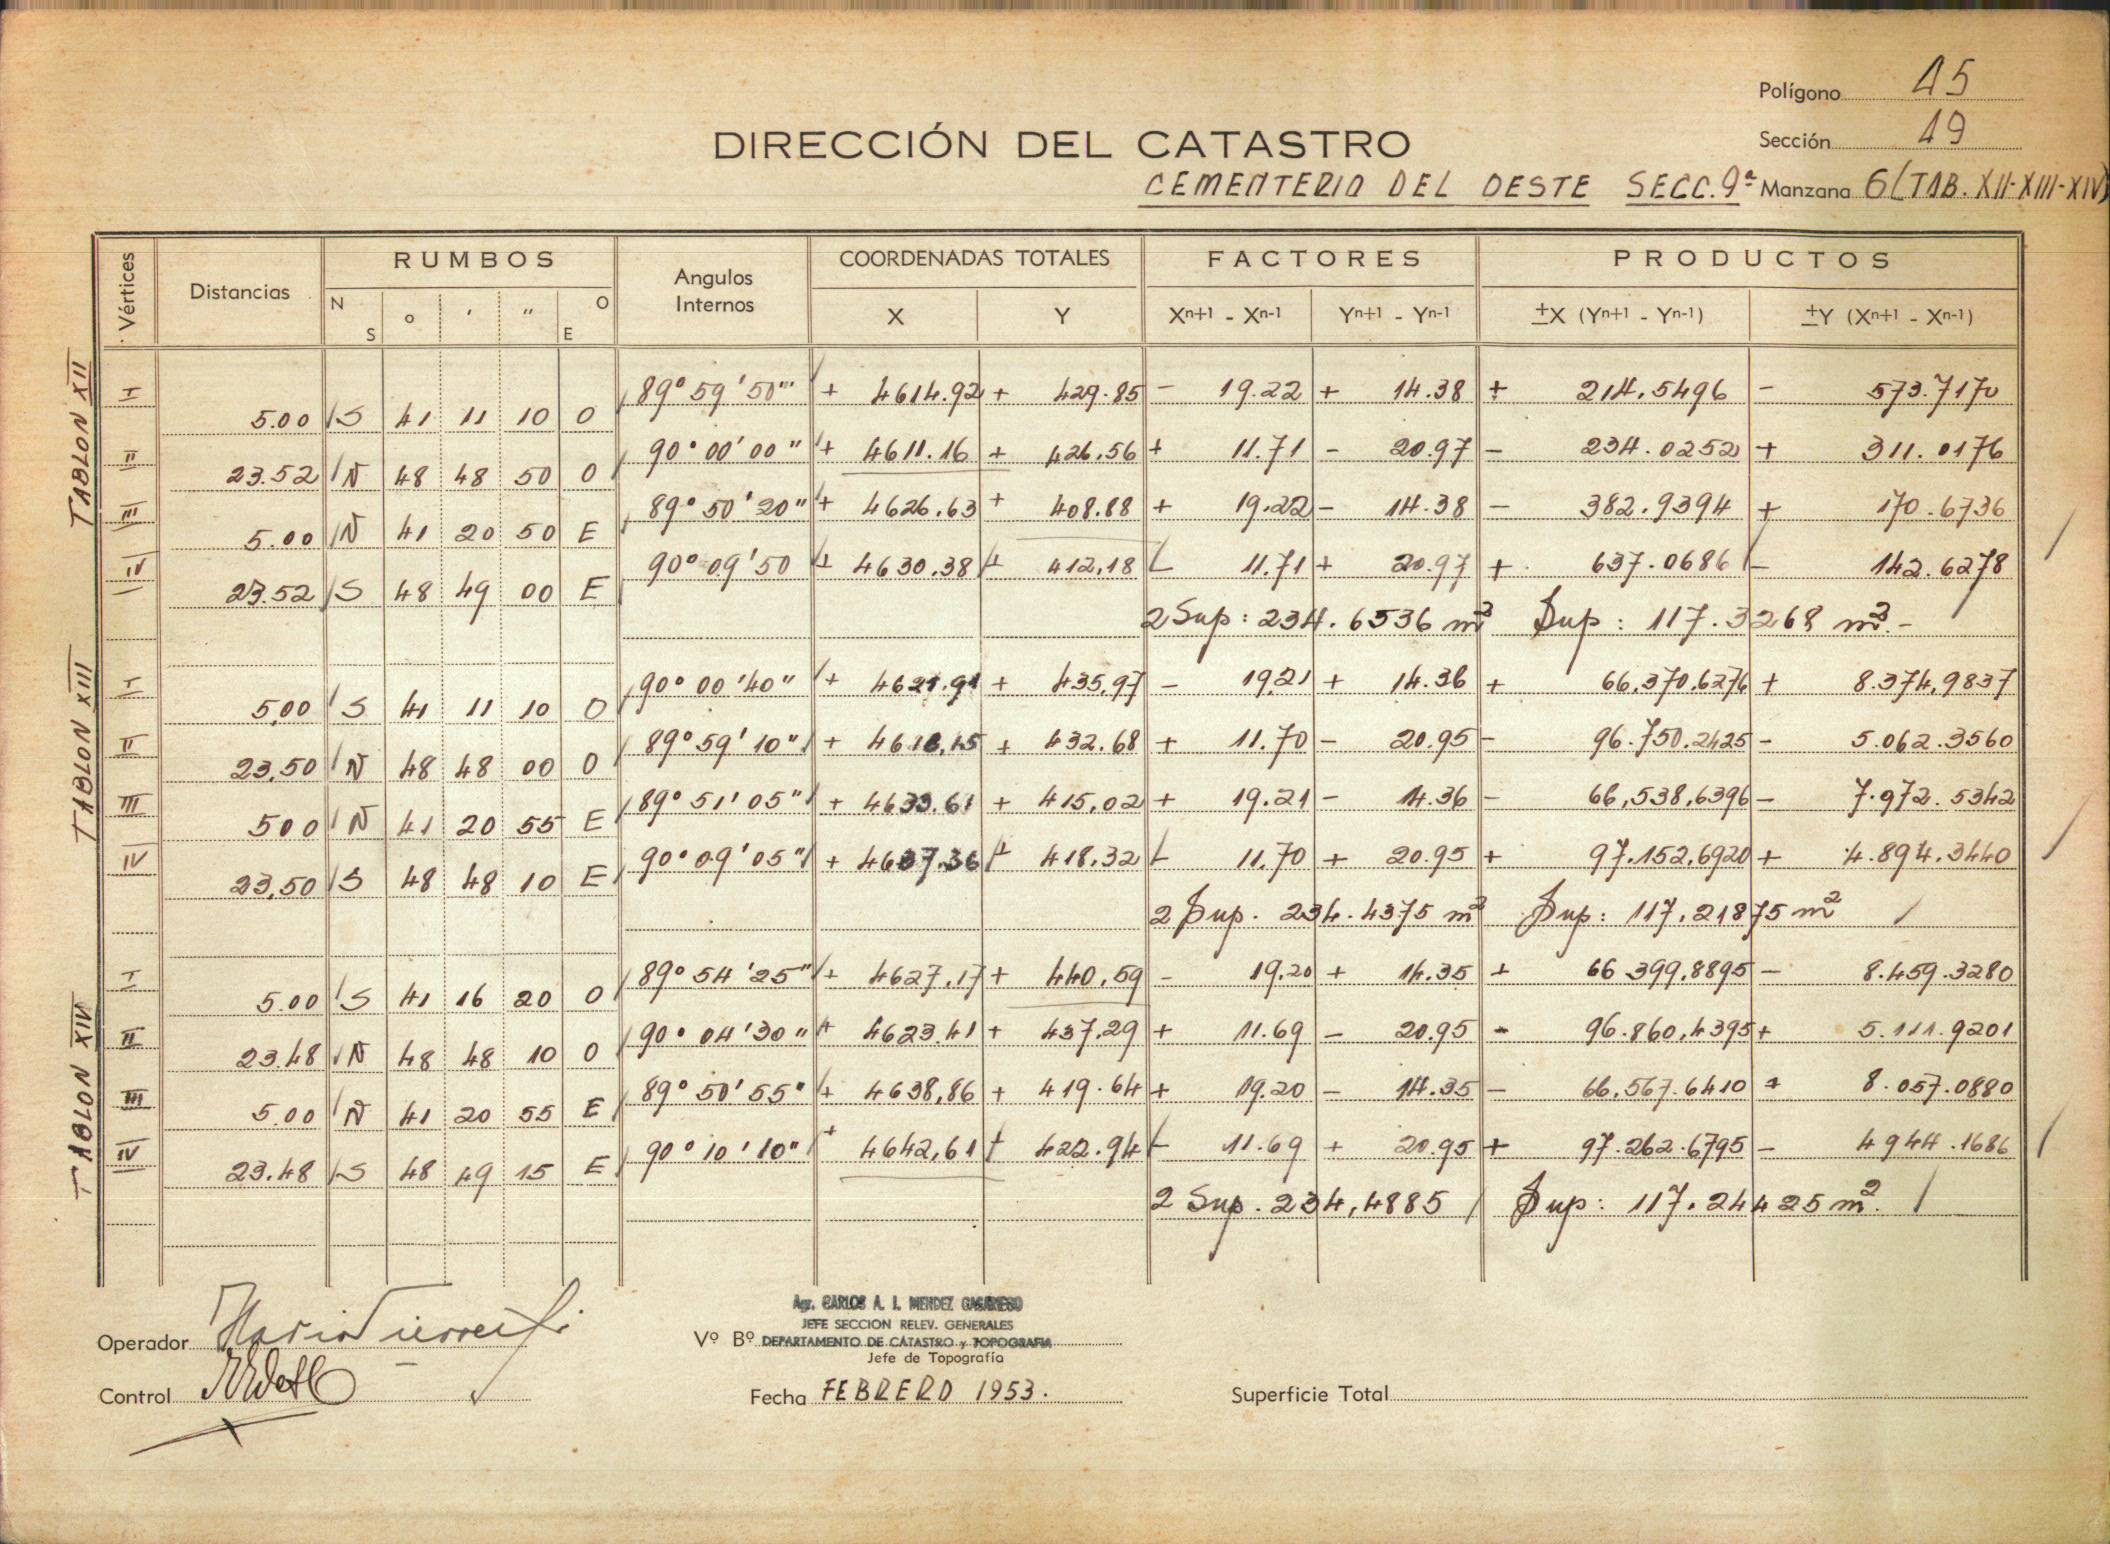 Polígono 15
DIRECCIÓN DEL CATASTRO
Sección 19
CEMENTERIO DEL OESTE SECC. 9ª Manzana 6 (TAB. XII-XIII-XIV)
Vértices Distancias RUMBOS Angulos Internos COORDENADAS TOTALES FACTORES PRODUCTOS
N S ° ' " O E X Y Xn+1 - Xn-1 Yn+1 - Yn-1 ±X (Yn+1 - Yn-1) ±Y (Xn+1 - Xn-1)
TABLON XII
I 89° 59' 50" + 4614.92 + 429.85 - 19.22 + 14.38 + 214.5496 - 573.7170
5.00 S 41 11 10 O
II 90° 00' 00" + 4611.16 + 426.56 + 11.71 - 20.97 - 234.0252 + 311.0176
23.52 N 48 48 50 O
III 89° 50' 20" + 4626.63 + 408.88 + 19.22 - 14.38 - 382.9394 + 170.6736
5.00 N 41 20 50 E
IV 90° 09' 50 + 4630.38 + 412.18 - 11.71 + 20.97 + 637.0686 - 142.6278
23.52 S 48 49 00 E
2 Sup: 234.6536 m² Sup: 117.3268 m².-
TABLON XIII
I 90° 00' 40" + 4621.91 + 435,97 - 19,21 + 14.36 + 66,370,6276 + 8.374,9837
5,00 S 41 11 10 O
II 89° 59' 10" + 4618,15 + 432.68 + 11.70 - 20.95 - 96.750.2425 - 5.062.3560
23,50 N 48 48 00 O
III 89° 51' 05" + 4633.61 + 415,02 + 19.21 - 14.36 - 66,538,6396 - 7.972.5342
500 N 41 20 55 E
IV 90° 09' 05" + 4637.36 + 418,32 - 11,70 + 20.95 + 97.152,6920 + 4.894.3440
23,50 S 48 48 10 E
2 Sup. 234.4375 m² Sup: 117.21875 m²
TABLON XIV
I 89° 54' 25" + 4627,17 + 440,59 - 19,20 + 14.35 + 66 399,8895 - 8.459.3280
5.00 S 41 16 20 O
II 90° 04' 30" + 4623.41 + 437,29 + 11.69 - 20.95 - 96.860,4395 + 5.111.9201
23.48 N 48 48 10 O
III 89° 50' 55" + 4638,86 + 419.64 + 19.20 - 14.35 - 66,567.6410 + 8.057.0880
5.00 N 41 20 55 E
IV 90° 10' 10" + 4642,61 + 422.94 - 11.69 + 20.95 + 97.262.6795 - 4944.1686
23.48 S 48 49 15 E
2 Sup. 234,4885 Sup: 117.24425 m².
Agr. CARLOS A. I. MENDEZ
JEFE SECCION RELEV. GENERALES
Operador Vº Bº DEPARTAMENTO DE CATASTRO y TOPOGRAFIA
Jefe de Topografía
Control Fecha FEBRERO 1953. Superficie Total